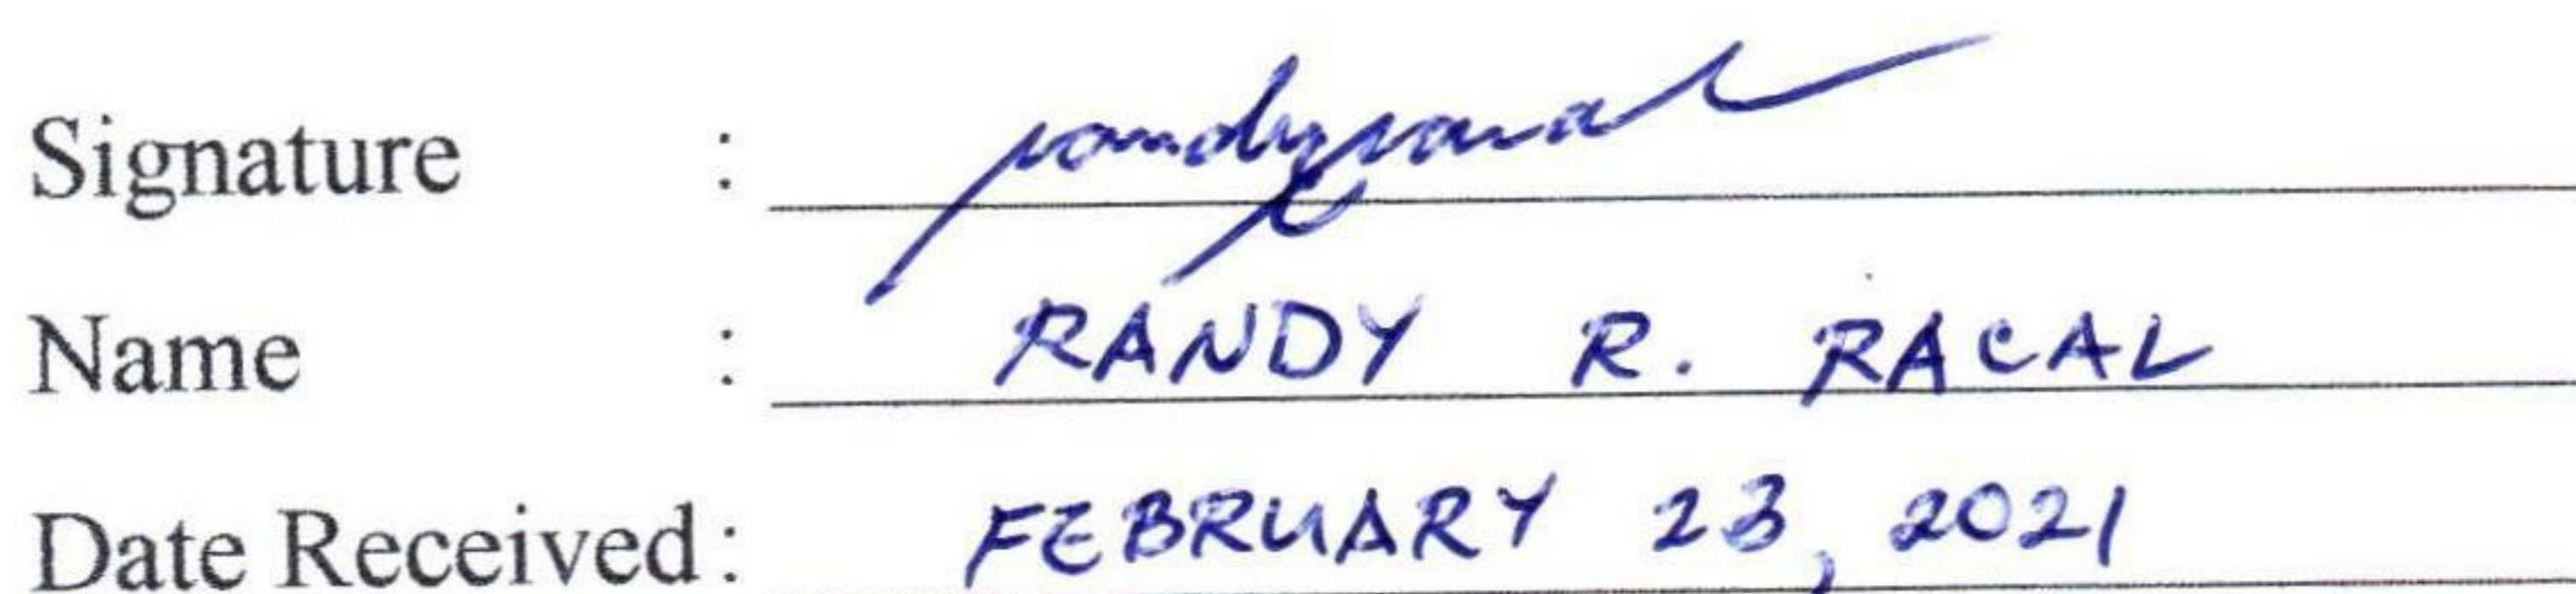 Signature : randyracal
Name : RANDY R. RACAL
Date Received: FEBRUARY 23, 2021